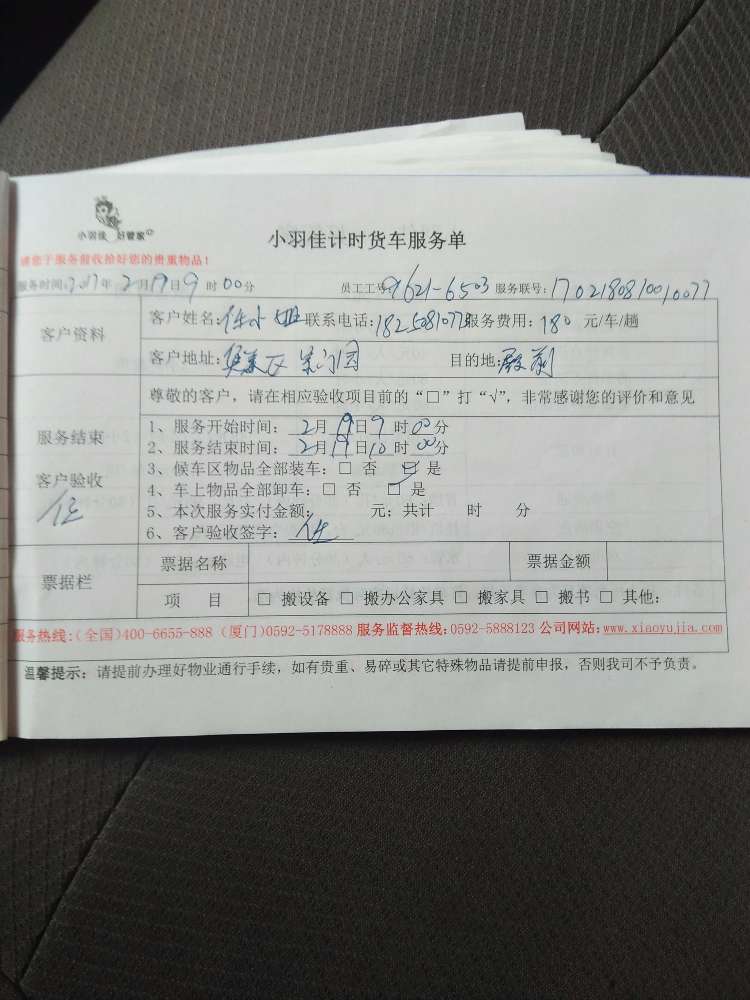 小羽佳 好管家
小羽佳计时货车服务单
请您于服务前收拾好您的贵重物品！
服务时间：2017年2月19日9时00分 员工工号：9621-6503 服务联号：1702180810010077
客户资料
客户姓名：任小姐 联系电话：18250810773 服务费用：180 元/车/趟
客户地址：集美区 目的地：殿前
尊敬的客户，请在相应验收项目前的“□”打“√”，非常感谢您的评价和意见
服务结束
客户验收
任
1、服务开始时间：2月19日9时00分
2、服务结束时间：2月19日10时00分
3、候车区物品全部装车：□ 否 ☑ 是
4、车上物品全部卸车：□ 否 ☑ 是
5、本次服务实付金额： 元：共计 时 分
6、客户验收签字：任
票据栏
票据名称 票据金额
项 目 □ 搬设备 □ 搬办公家具 □ 搬家具 □ 搬书 □ 其他：
服务热线：(全国)400-6655-888 (厦门)0592-5178888 服务监督热线：0592-5888123 公司网站：www.xiaoyujia.com
温馨提示：请提前办理好物业通行手续，如有贵重、易碎或其它特殊物品请提前申报，否则我司不予负责。